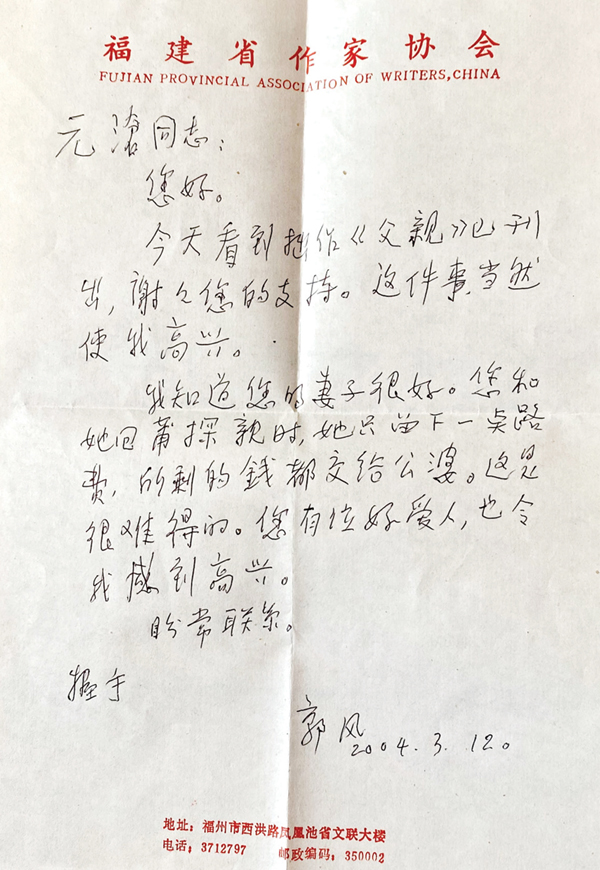 福建省作家协会
FUJIAN PROVINCIAL ASSOCIATION OF WRITERS,CHINA
元滄同志：
您好。
今天看到拙作《父親》已刊
出，謝々您的支持。这件事当然
使我高兴。
我知道您的妻子很好。您和
她回莆探親时，她只留下一点路
费，所剩的錢都交给公婆。这是
很难得的。您有位好爱人，也令
我感到高兴。
盼常联系。
握手
郭风
2004.3.12。
地址：福州市西洪路凤凰池省文联大楼
电话：3712797 邮政编码：350002